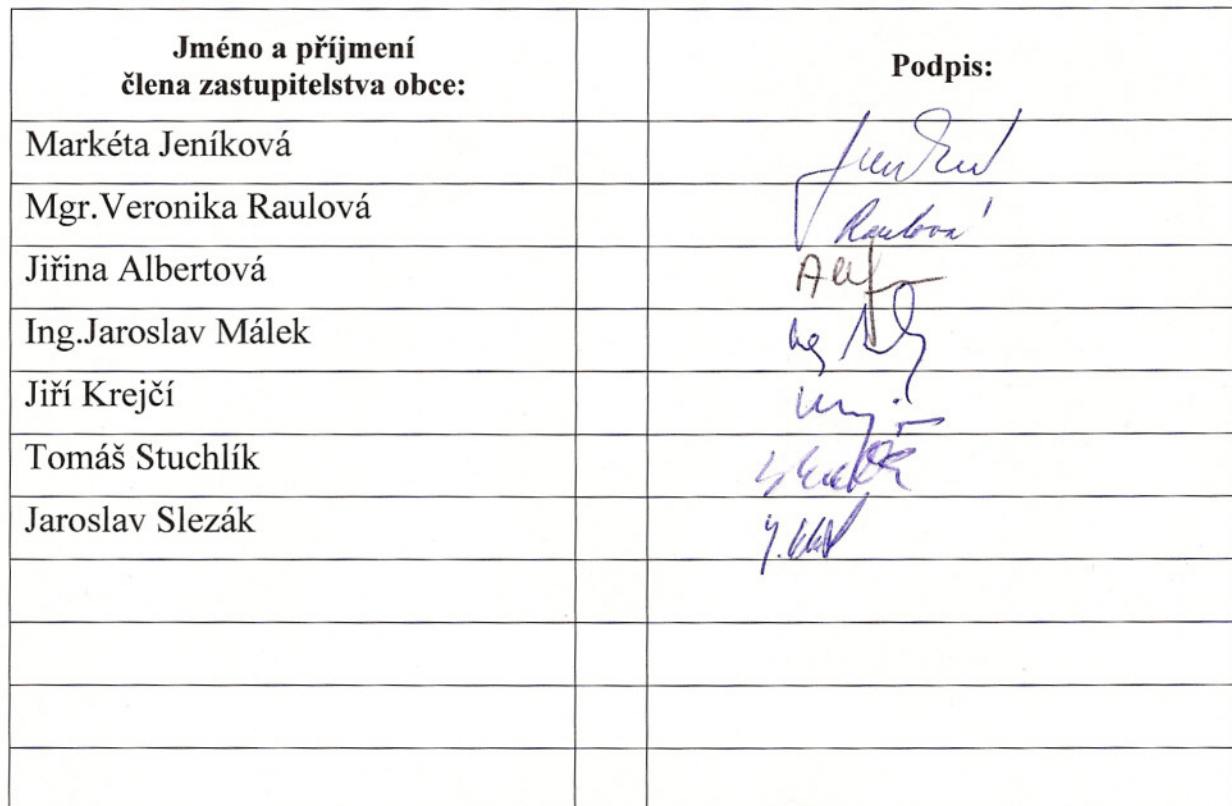 Jméno a příjmení
člena zastupitelstva obce:
Podpis:
Markéta Jeníková
Mgr.Veronika Raulová
Raulová
Jiřina Albertová
Ing.Jaroslav Málek
Jiří Krejčí
Tomáš Stuchlík
Jaroslav Slezák